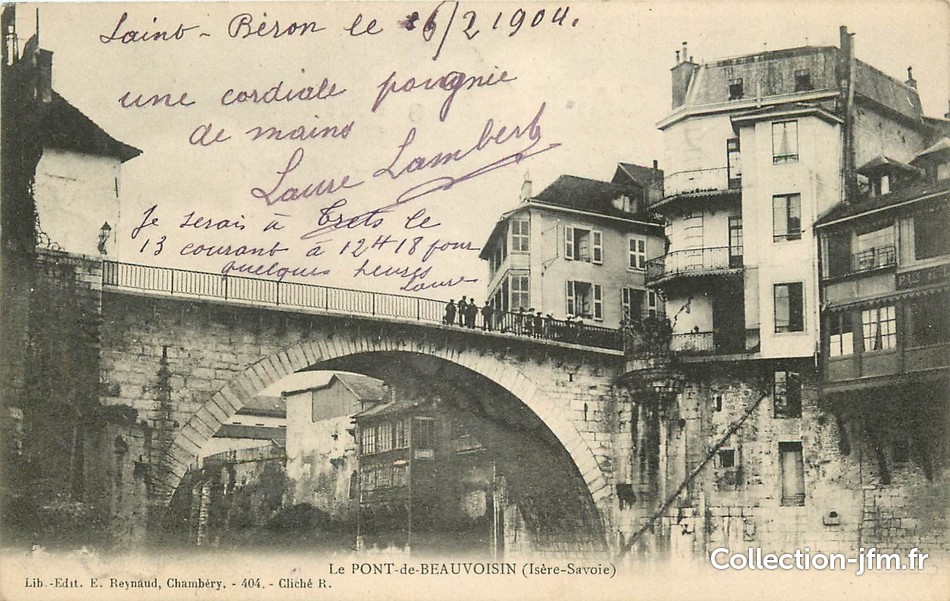 Saint-Béron le 6/2 1904.
une cordiale poignie
de mains
Laure Lambert
Je serais à Trets le
13 courant à 12H18 pour
quelques heures
Laure
Le PONT-de-BEAUVOISIN (Isère-Savoie)
Lib.-Edit. E. Reynaud, Chambéry. - 404. - Cliché R.
Collection-jfm.fr